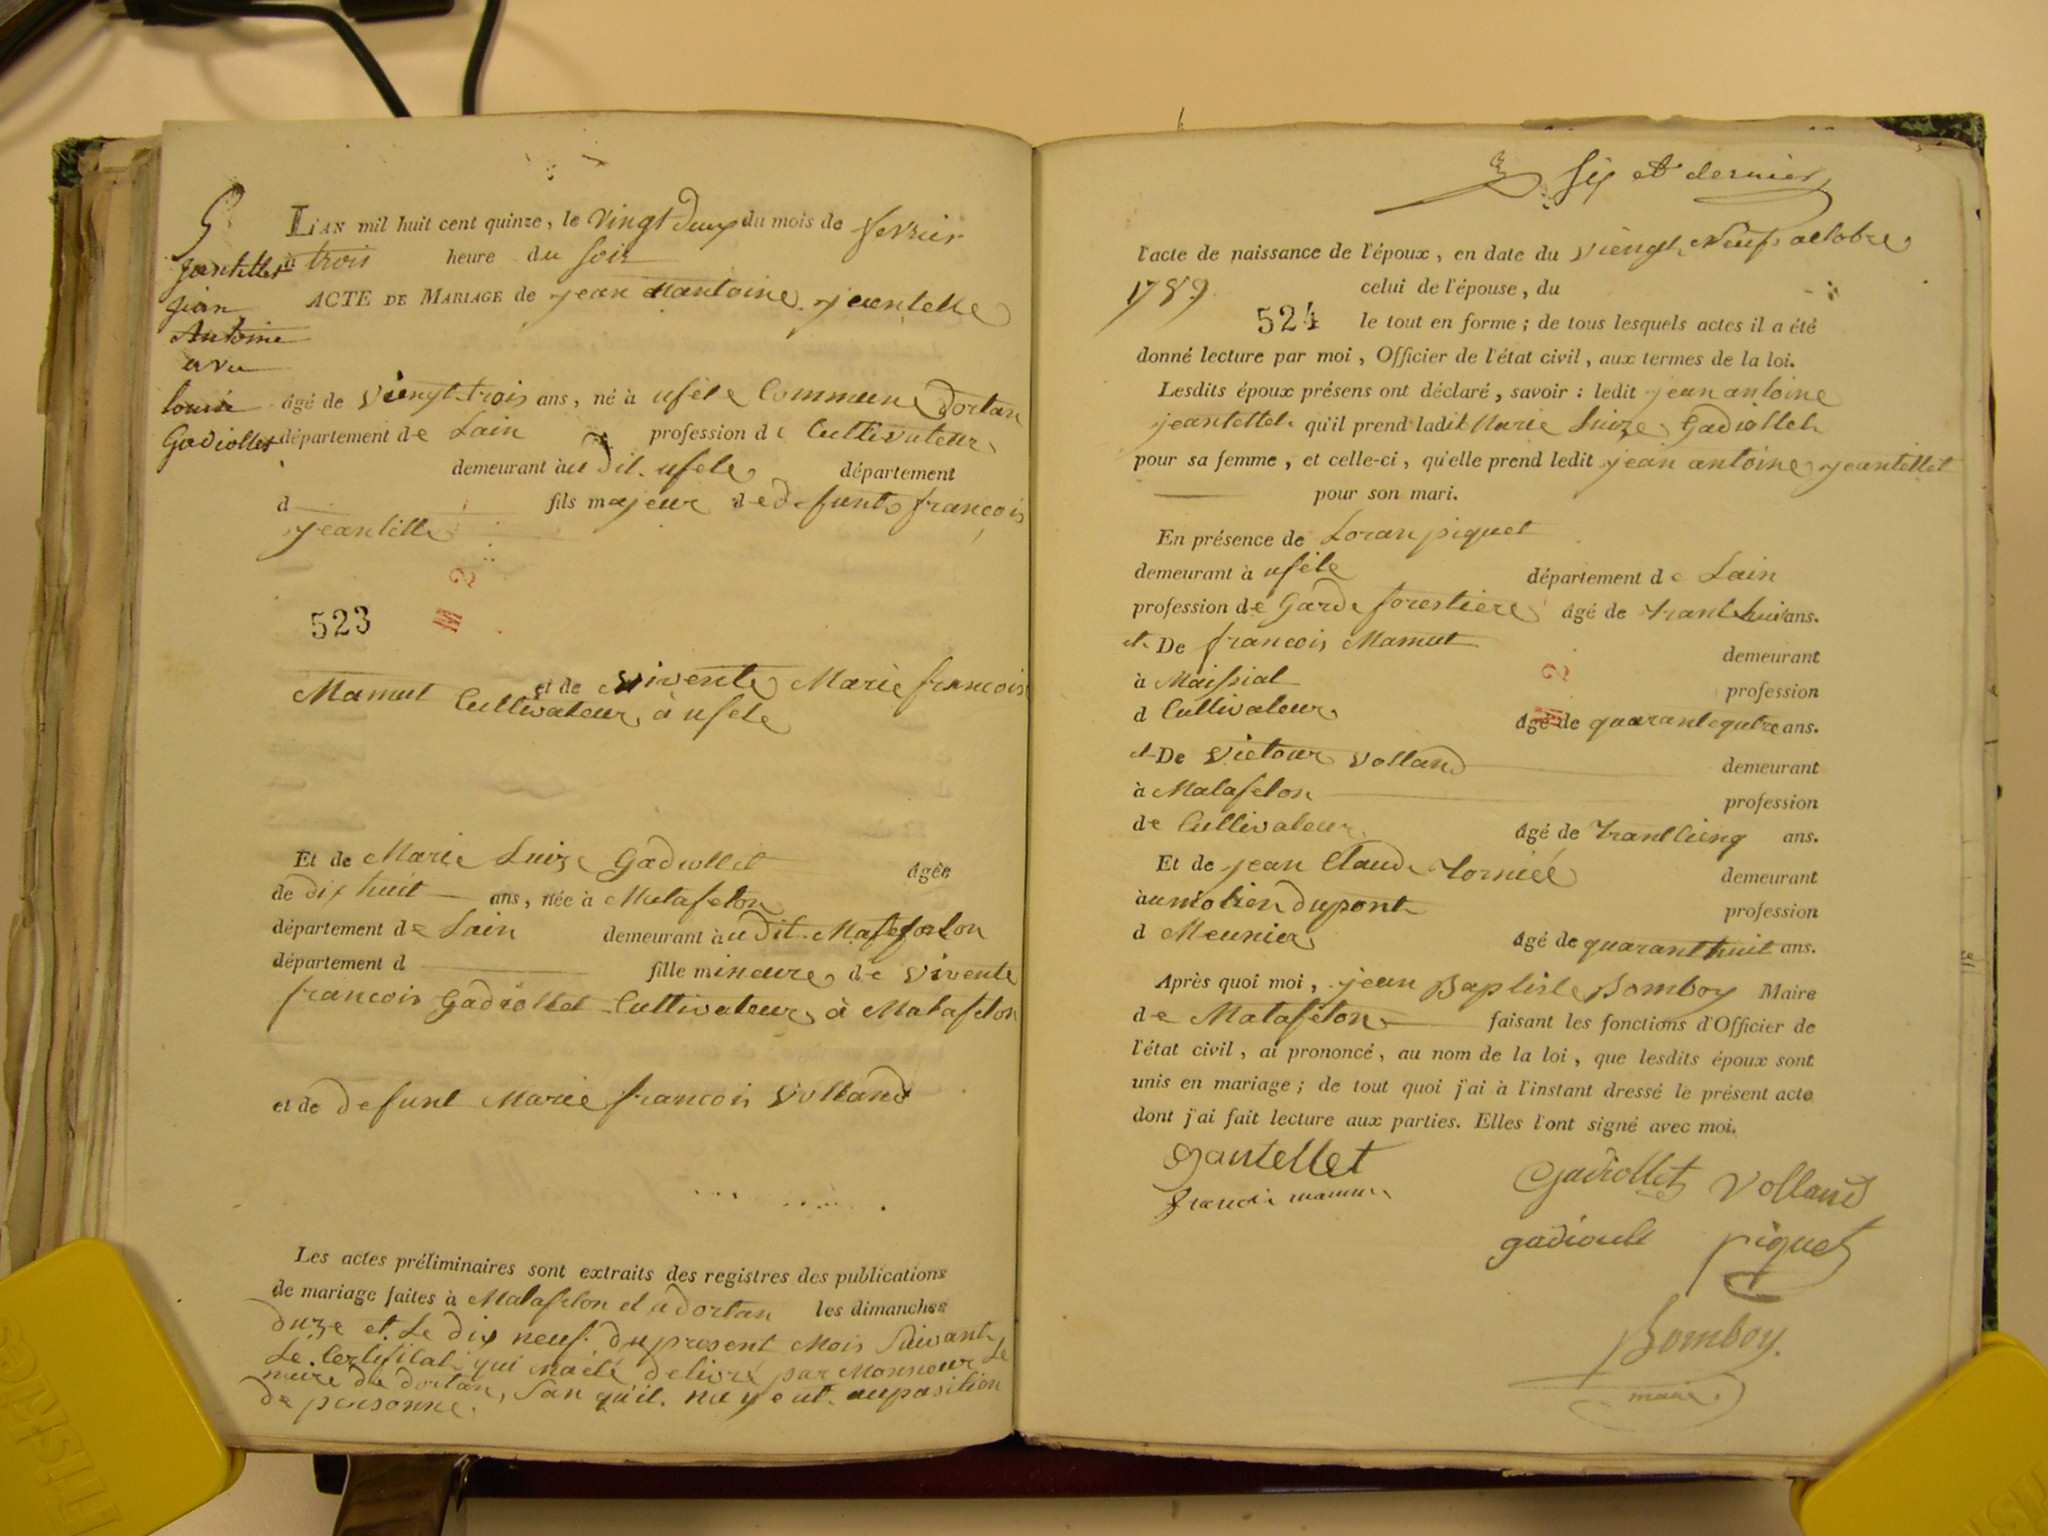 5
Jantellet
jean
Antoine
avec
Louise
Gadiollet
L'AN mil huit cent quinze, le vingt deux du mois de fevrier
à trois heure du soir
ACTE DE MARIAGE de jean antoine jeantelle
âgé de viengt trois ans, né à uféle Commune dortan
département de Lain profession de Cultivateur
demeurant àu dit ufele département
d fils majeur de defunt francois
jeantelle
523
et de vivente Marie francois
Mamut Cultivateur à ufele
Et de Marie Luize Gadiollet âgée
de dix huit ans, née à Matafelon
département de Lain demeurant àu dit Matefelon
département d fille mineure de vivente
francois Gadiollet Cultivateur à Matafelon
et de defunt Marie francois Volland
Les actes préliminaires sont extraits des registres des publications
de mariage faites à Matafelon et a dortan les dimanches
duze et Le dix neuf du present Mois Suivant
Le Certificat qui ma été delivré par Monsieur Le
maire de dortan, San qu'il ni y e ut auposition
de personne.
Six et dernier
l'acte de naissance de l'époux, en date du viengt Neuf octobre
1789 celui de l'épouse, du
524 le tout en forme; de tous lesquels actes il a été
donné lecture par moi, Officier de l'état civil, aux termes de la loi.
Lesdits époux présens ont déclaré, savoir: ledit jean antoine
jeantellet qu'il prend ladit Marie Luize Gadiollet
pour sa femme, et celle-ci, qu'elle prend ledit jean antoine jeantellet
pour son mari.
En présence de Loran piquet
demeurant à uféle département de Lain
profession de Garde forestiere âgé de trant huit ans.
et De francois Mamut demeurant
à Maissiat profession
d Cultivateur âgé de quarant qutre ans.
et De Victour Volland demeurant
à Matafelon profession
de Cultivateur âgé de trant cienq ans.
Et de jean Claude tornié demeurant
àu molien du pont profession
d Meunier âgé de quarant huit ans.
Après quoi moi, jean Baptiste Bomboy Maire
de Matafelon faisant les fonctions d'Officier de
l'état civil, ai prononcé, au nom de la loi, que lesdits époux sont
unis en mariage; de tout quoi j'ai à l'instant dressé le présent acte
dont j'ai fait lecture aux parties. Elles l'ont signé avec moi.
Jantellet Gadiollet Volland
piquet
Bomboy.
maire